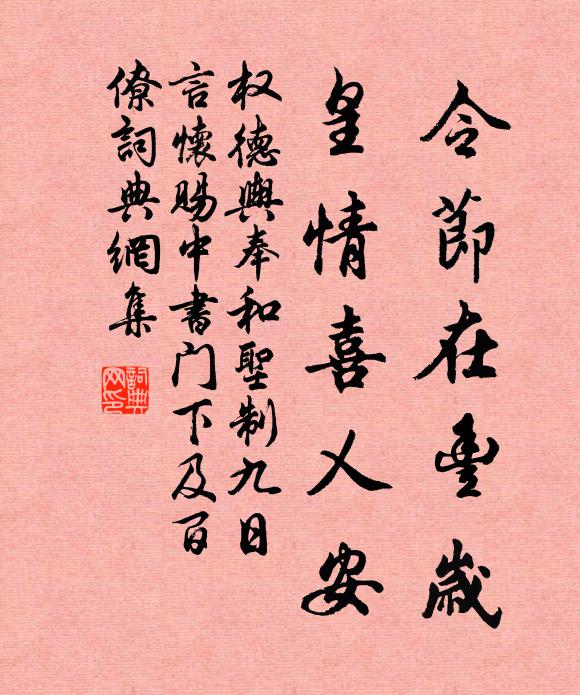 令節在豊歲
皇情喜乂安
权德輿奉和聖制九日
言懷賜中書门下及百
僚詞典網集
詞典
网印